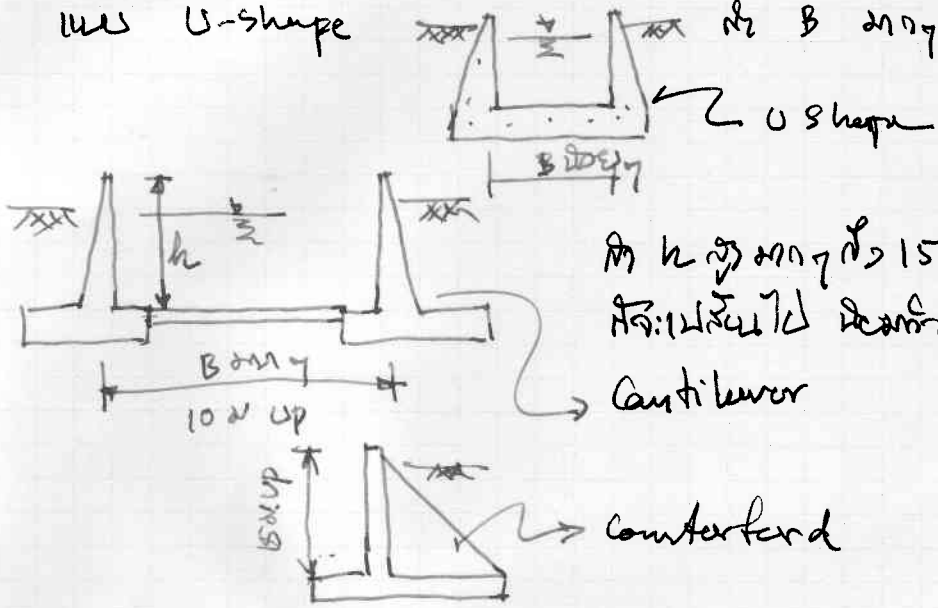 แบบ U-Shape
ถ้า B มากๆ
U Shape
B น้อยๆ
h
ถ้า h สูงมากๆ ถึง 15
ก็จะเปลี่ยนไป
B มากๆ
10 ม up
Cantilever
15 ม. up
Counterford